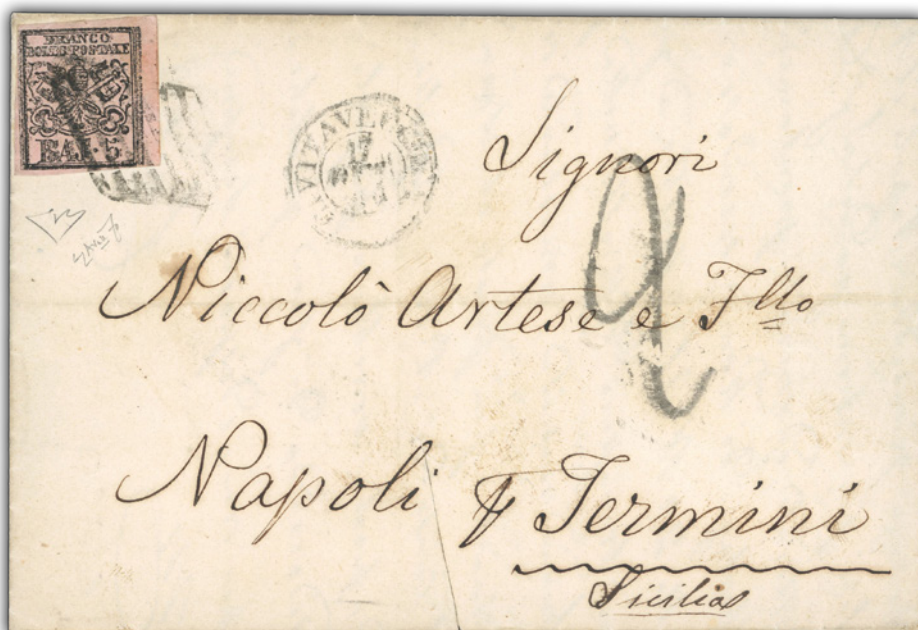 FRANCO
BOLLO POSTALE
BAJ. 5
Signori
Niccolò Artese e Fllo
Napoli p Termini
Sicilia
2